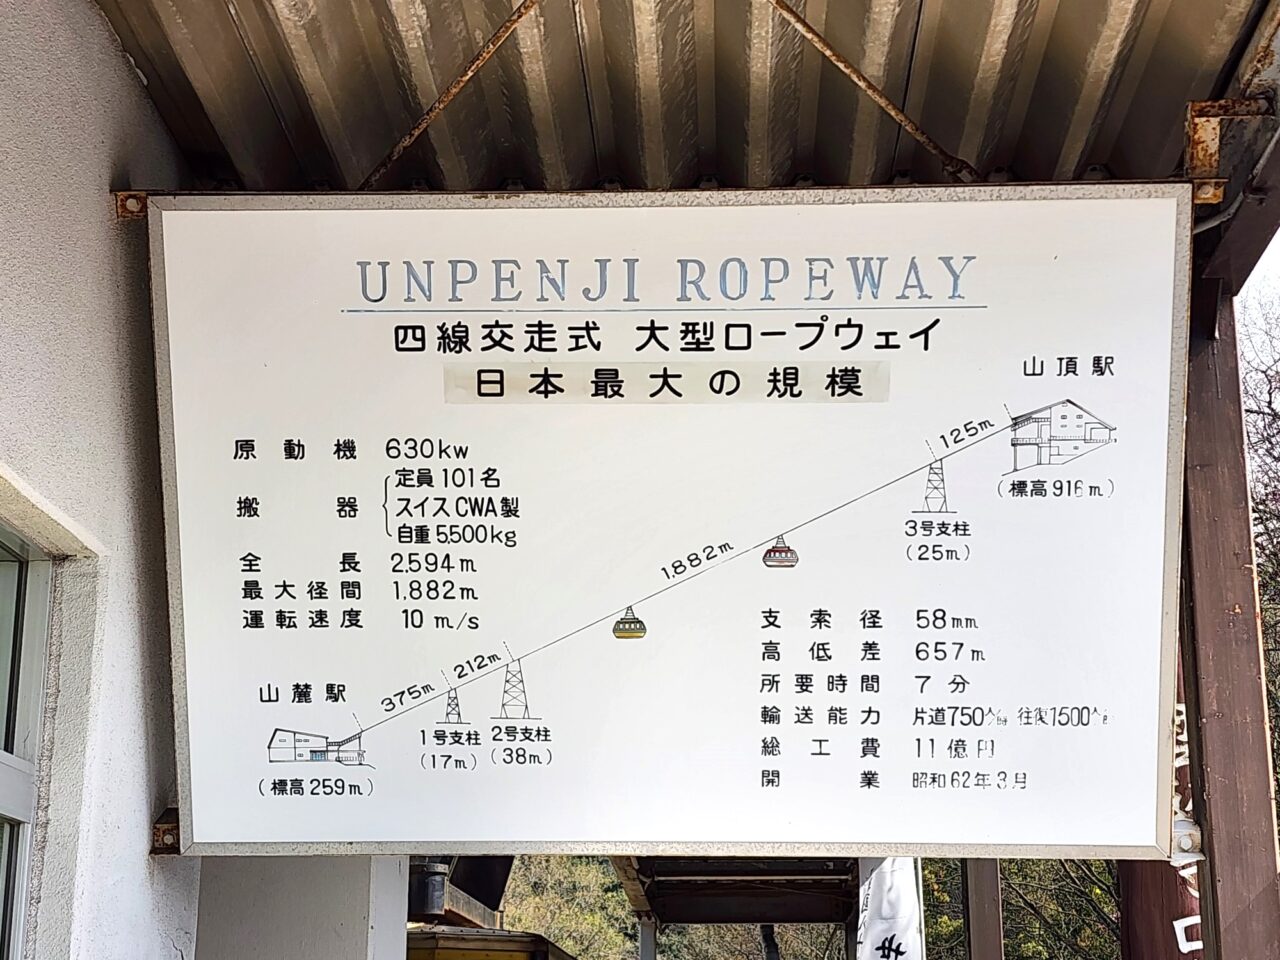 UNPENJI ROPEWAY
四線交走式 大型ロープウェイ
日本最大の規模
原動機 630kw
搬器 定員101名
スイスCWA製
自重5,500kg
全長 2,594m
最大径間 1,882m
運転速度 10m/s
山頂駅
(標高916m)
125m
3号支柱
(25m)
1,882m
212m
375m
山麓駅
(標高259m)
1号支柱
(17m)
2号支柱
(38m)
支索径 58mm
高低差 657m
所要時間 7分
輸送能力 片道750人/時 往復1500人/時
総工費 11億円
開業 昭和62年3月